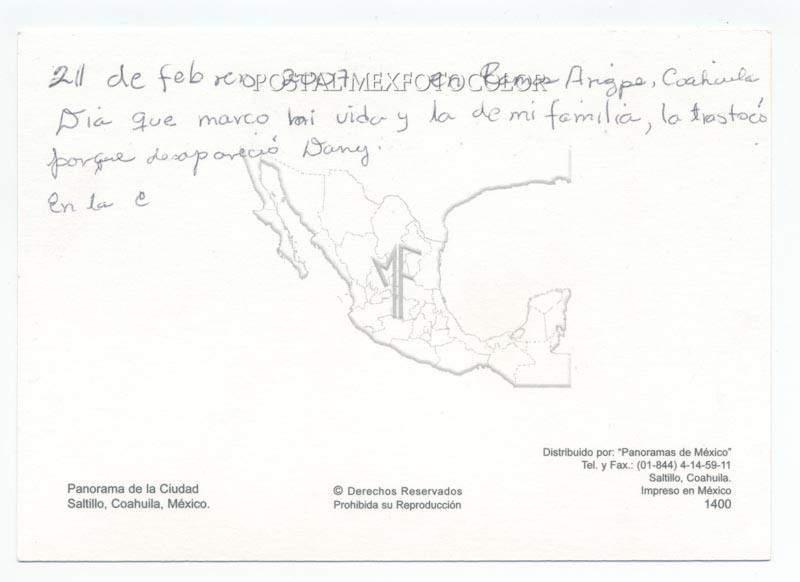 21 de febrero 2007 en Ramos Arizpe, Coahuila
POSTAL MEXFOTOCOLOR
Dia que marco mi vida y la de mi familia, la trastocó
porque desapareció Dany.
En la C
MF
Distribuido por: "Panoramas de México"
Tel. y Fax.: (01-844) 4-14-59-11
Saltillo, Coahuila.
Impreso en México
1400
Panorama de la Ciudad
Saltillo, Coahuila, México.
© Derechos Reservados
Prohibida su Reproducción